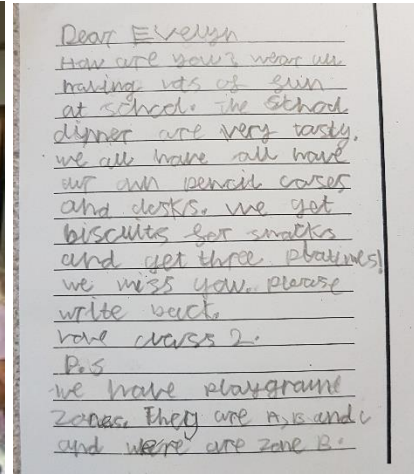 Dear Evelyn
How are you? wear all
having lots of fun
at school. The school
dinner are very tasty.
we all have all have
our own pencil cases
and desks. we get
biscuits for snacks
and get three platimes!
we miss you. please
write back.
love class 2.
P.S
we have playgroune
zones. They are A, B and C
and we're are zone B.